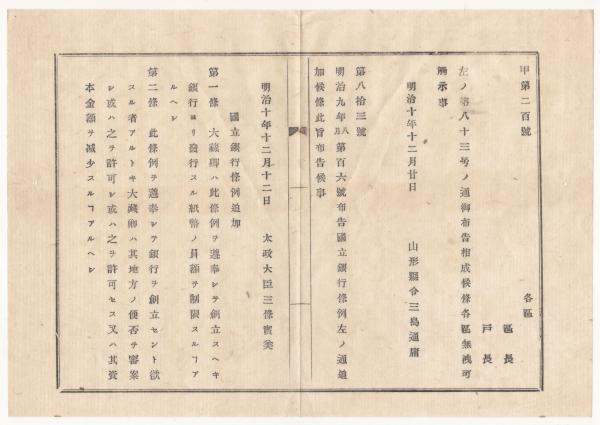 甲第二百號
各區
區長
戸長
左ノ第八十三号ノ通御布告相成候條各區無洩可
觸示事
明治十年十二月廿日
山形縣令三島通庸
第八拾三號
明治九年八月第百六號布告國立銀行條例左ノ通追
加候條此旨布告候事
明治十年十二月十二日
太政大臣三條實美
國立銀行條例追加
第一條 大藏卿ハ此條例ヲ遵奉シテ創立スヘキ
銀行ヨリ發行スル紙幣ノ員額ヲ制限スルヿア
ルヘシ
第二條 此條例ヲ遵奉シテ銀行ヲ創立セント欲
スル者アルトキ大藏卿ハ其地方ノ便否ヲ審案
シ或ハ之ヲ許可シ或ハ之ヲ許可セス又ハ其資
本金額ヲ減少スルヿアルヘシ